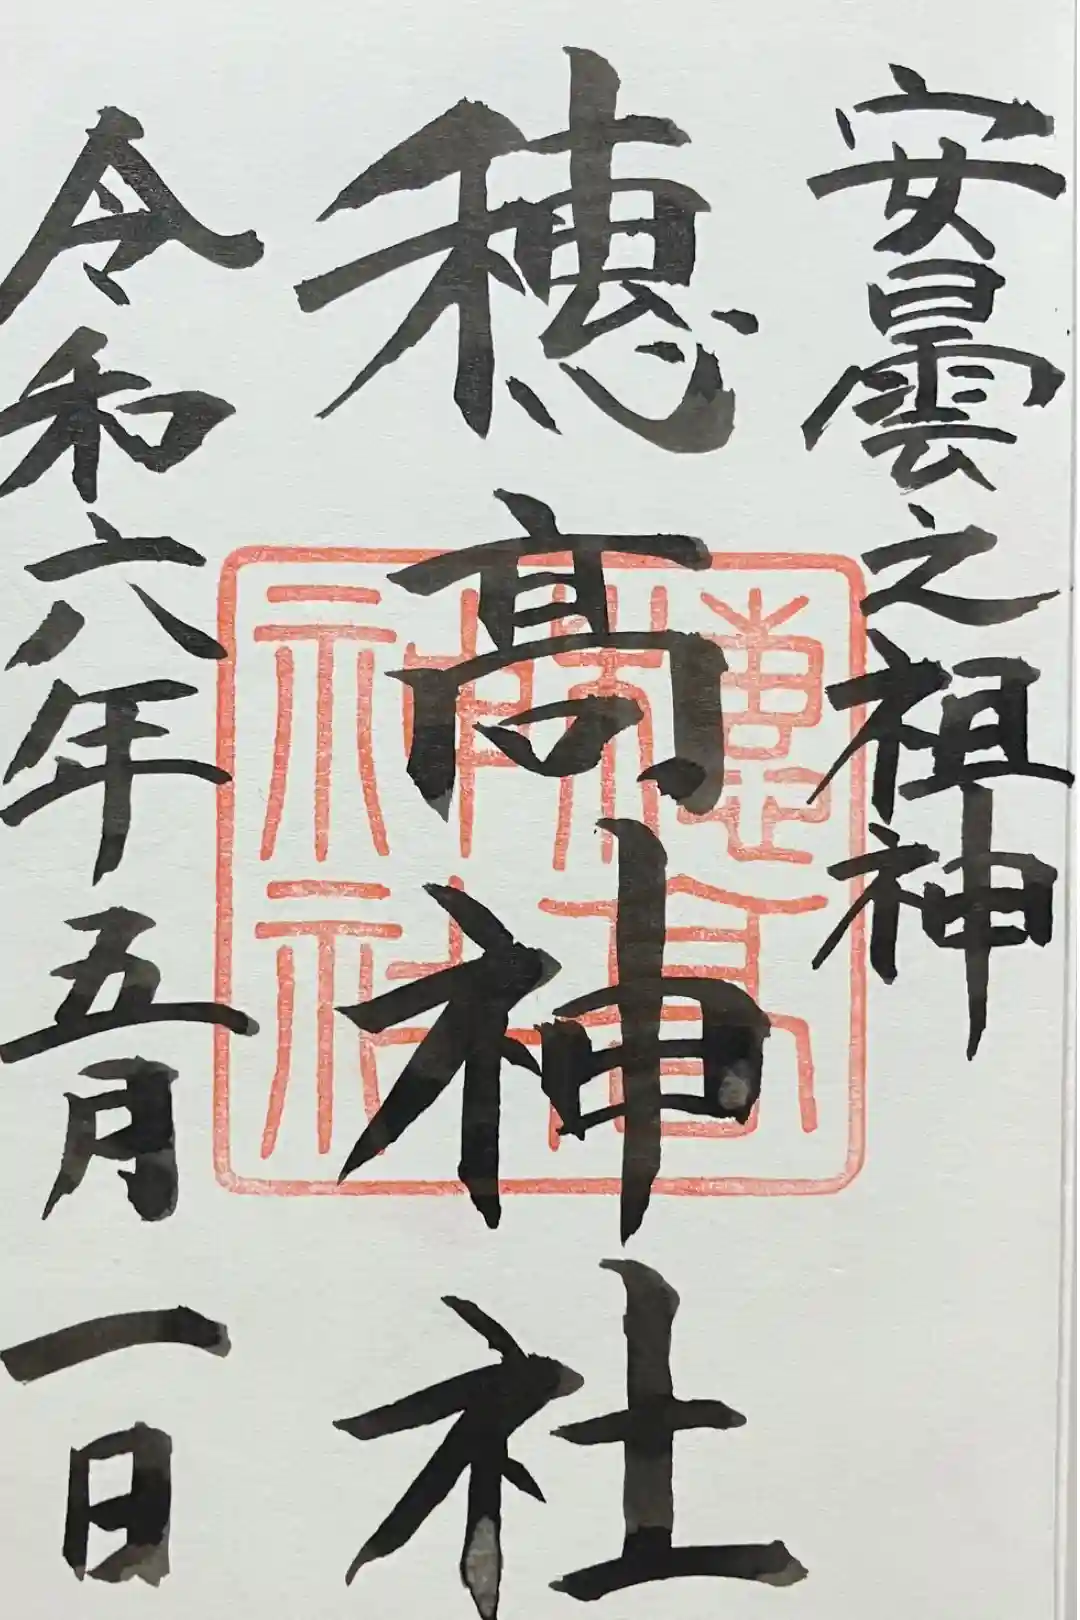 安曇之祖神
穂髙神社
令和六年五月一日
穂髙神社